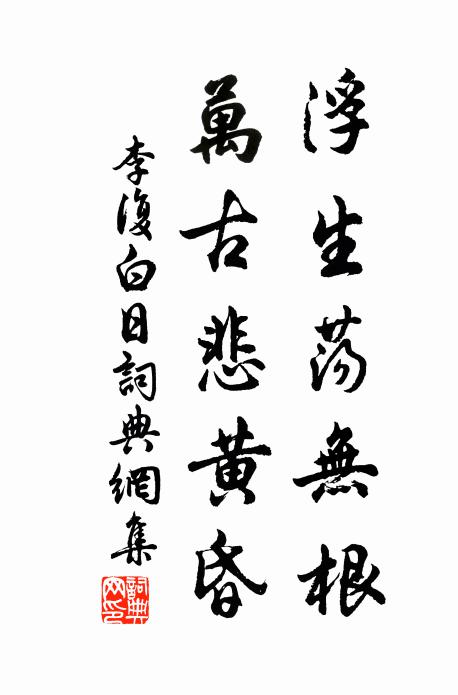 浮生蕩無根
萬古悲黃昏
李復白日詞典網集
詞典网印